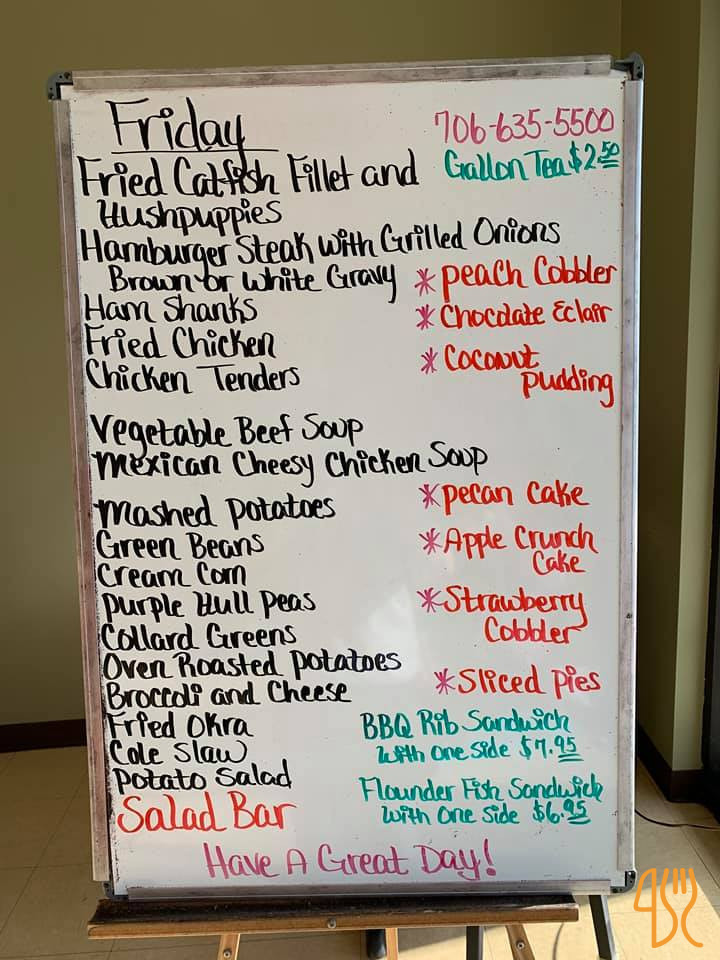 Friday
706-635-5500
Gallon Tea $2.50
Fried Catfish Fillet and
Hushpuppies
Hamburger Steak with Grilled Onions
Brown or White Gravy
Ham Shanks
Fried Chicken
Chicken Tenders
*Peach Cobbler
*Chocolate Eclair
*Coconut
Pudding
Vegetable Beef Soup
Mexican Cheesy Chicken Soup
Mashed Potatoes
Green Beans
Cream Corn
Purple Hull Peas
Collard Greens
Oven Roasted Potatoes
Broccoli and Cheese
Fried Okra
Cole Slaw
Potato Salad
Salad Bar
*Pecan Cake
*Apple Crunch
Cake
*Strawberry
Cobbler
*Sliced Pies
BBQ Rib Sandwich
with One Side $7.95
Flounder Fish Sandwich
with One Side $6.95
Have A Great Day!